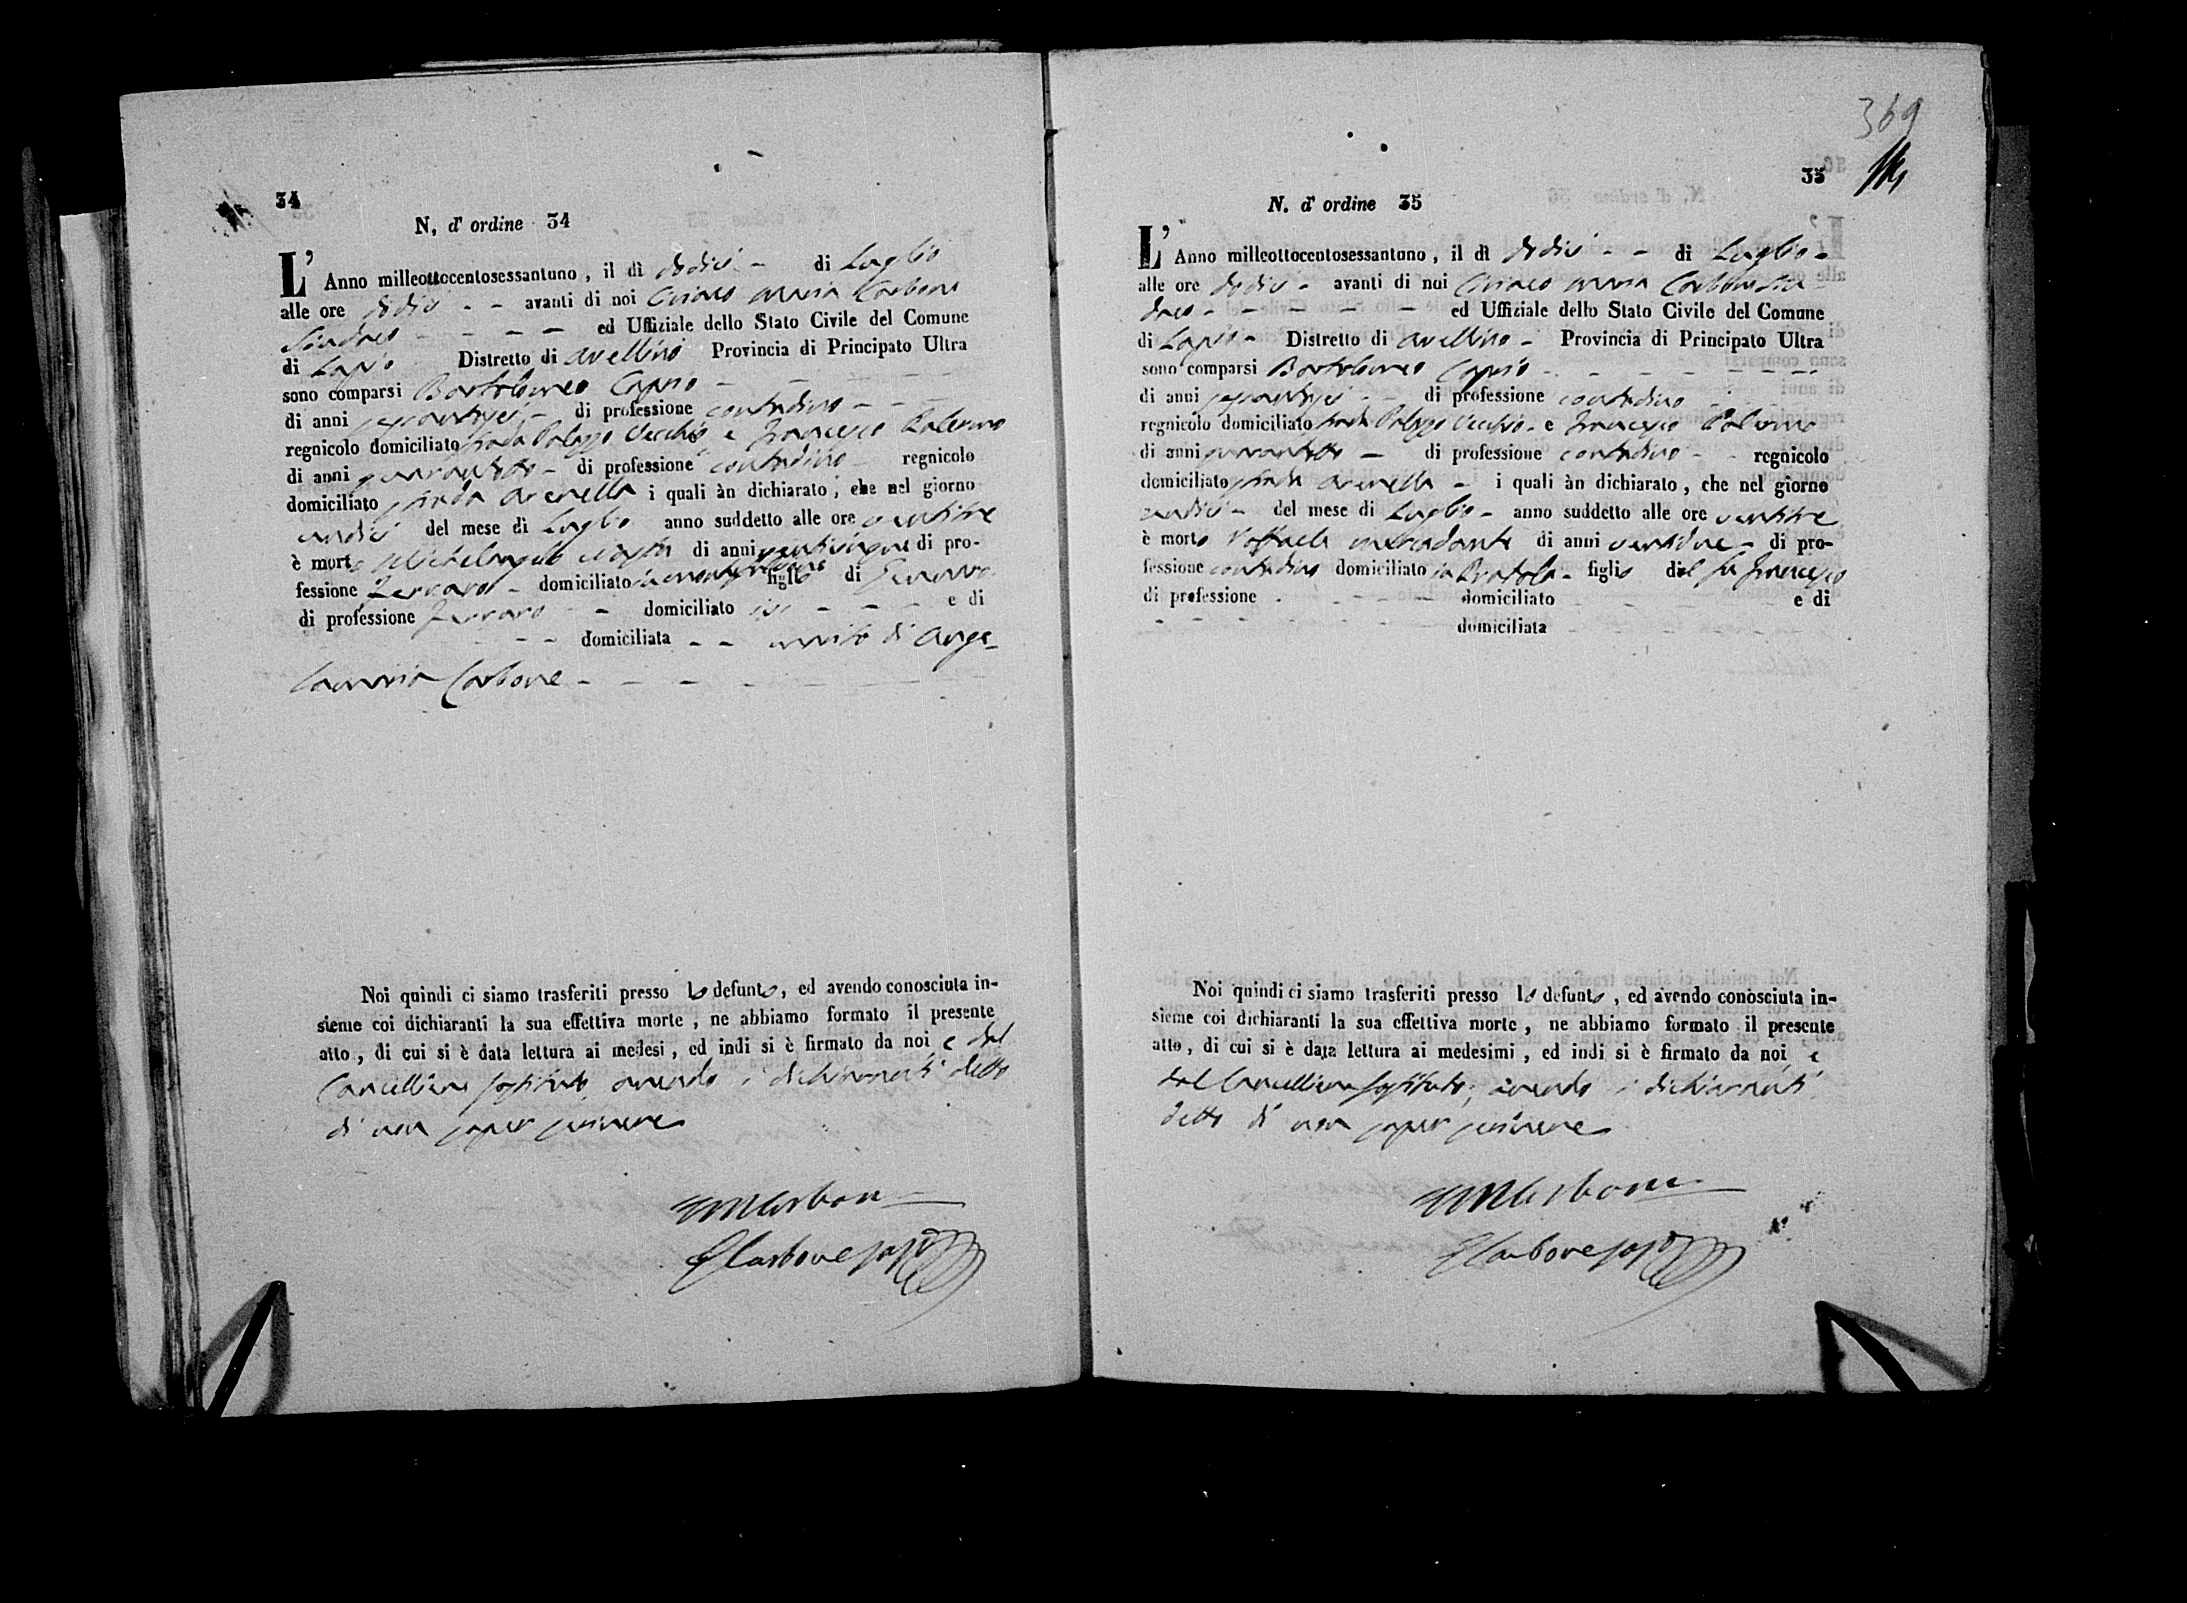 34
N. d' ordine 34
L' Anno milleottocentosessantuno, il dì dodici di Luglio
alle ore dodici avanti di noi Ciriaco Maria Carbone
Sindaco ed Uffiziale dello Stato Civile del Comune
di Lapio Distretto di Avellino Provincia di Principato Ultra
sono comparsi Bartolomeo Caprio
di anni sessantasei di professione contadino
regnicolo domiciliato strada Palazzo Vecchio e Francesco Palermo
di anni quarantotto di professione contadino regnicolo
domiciliato strada Arenella i quali àn dichiarato, che nel giorno
undici del mese di Luglio anno suddetto alle ore ventitre
è morto Michelangelo di anni venticinque di pro-
fessione Ferraro domiciliato in figlio di Gennaro
di professione Ferraro domiciliato ivi e di
domiciliata marito di Ange-
lamaria Carbone
Noi quindi ci siamo trasferiti presso lo defunto, ed avendo conosciuta in-
sieme coi dichiaranti la sua effettiva morte, ne abbiamo formato il presente
atto, di cui si è data lettura ai medesi, ed indi si è firmato da noi e dal
Cancelliere sostituto, avendo i dichiaranti detto
di non saper scrivere
CMCarbone
Carbone sosto
369
35
N. d' ordine 35
L' Anno milleottocentosessantuno, il dì dodici di Luglio
alle ore dodici avanti di noi Ciriaco Maria Carbone Sin
daco ed Uffiziale dello Stato Civile del Comune
di Lapio Distretto di Avellino Provincia di Principato Ultra
sono comparsi Bartolomeo Caprio
di anni sessantasei di professione contadino
regnicolo domiciliato strada Palazzo Vecchio e Francesco Palermo
di anni quarantotto di professione contadino regnicolo
domiciliato strada Arenella i quali àn dichiarato, che nel giorno
undici del mese di Luglio anno suddetto alle ore ventitre
è morto Raffaele Mercadante di anni ventidue di pro-
fessione contadino domiciliato in Pratola figlio del fu Francesco
di professione domiciliato e di
domiciliata
Noi quindi ci siamo trasferiti presso lo defunto, ed avendo conosciuta in-
sieme coi dichiaranti la sua effettiva morte, ne abbiamo formato il presente
atto, di cui si è data lettura ai medesimi, ed indi si è firmato da noi e
dal Cancelliere sostituto, avendo i dichiaranti
detto di non saper scrivere
CMCarbone
Carbone sosto